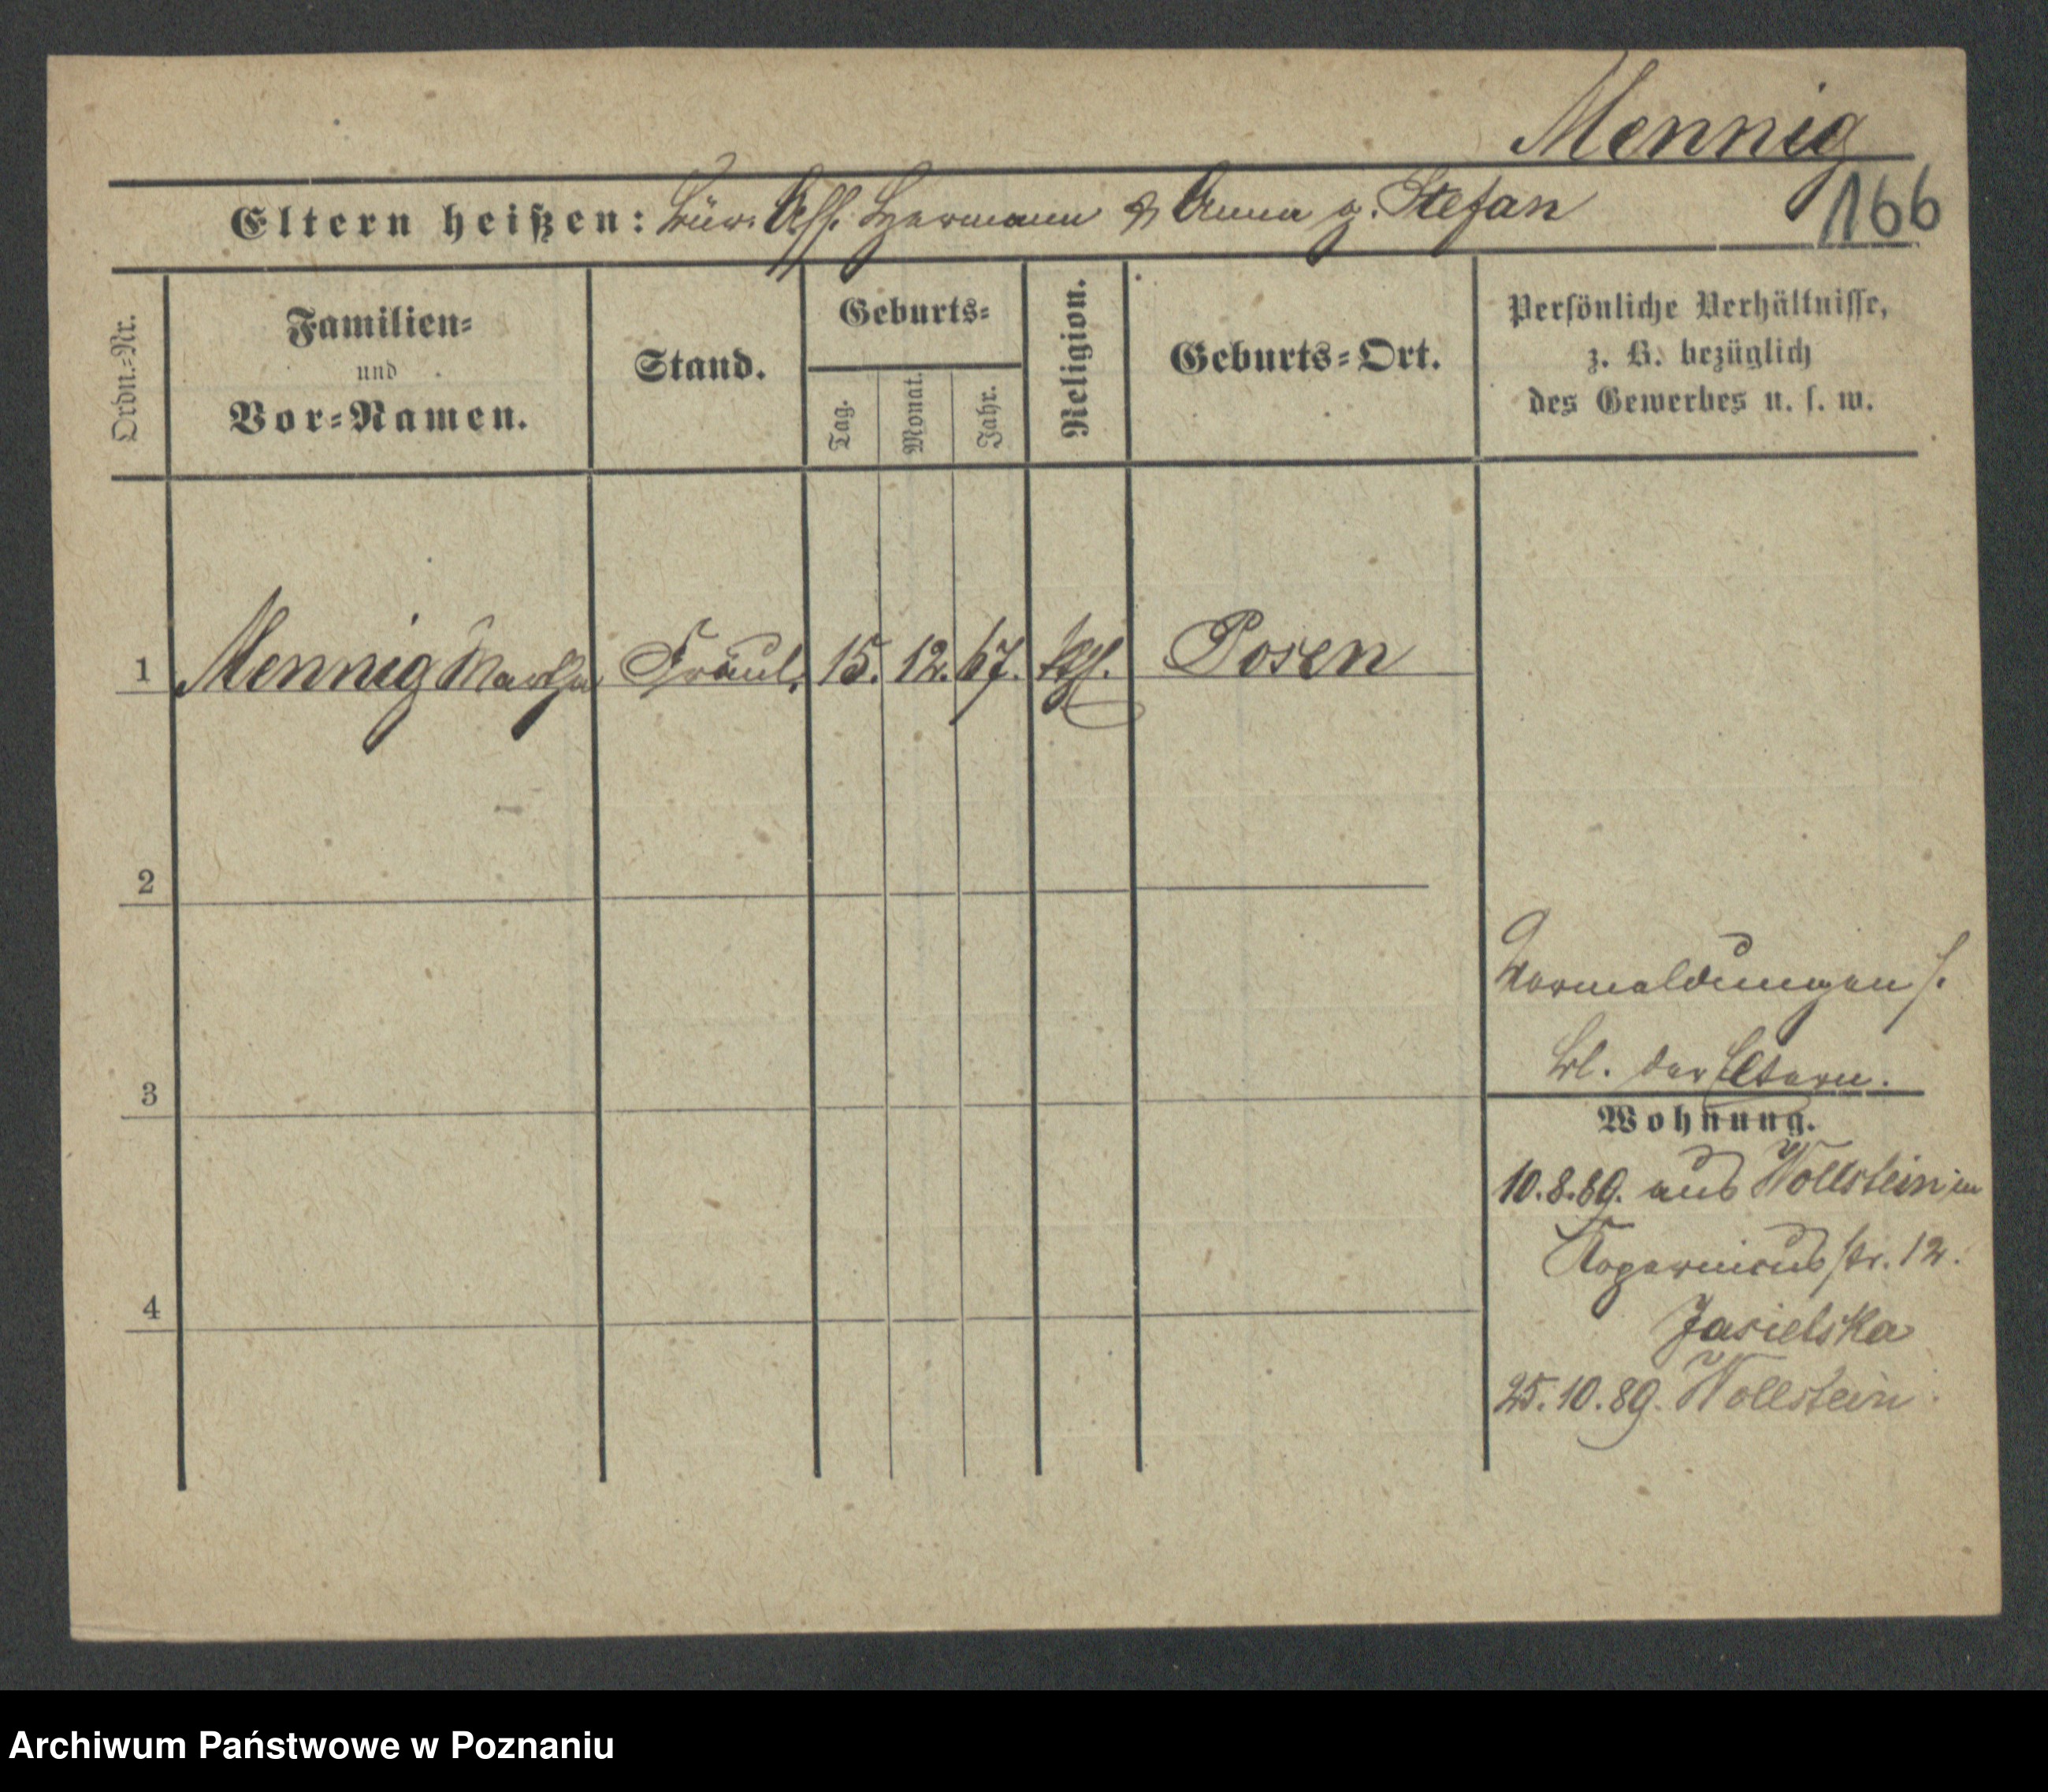 Mennig
166
Eltern heißen: Bür. Ass. Hermann & Anna g. Stefan
Ordn.-Nr.
Familien-
und
Vor-Namen.
Stand.
Geburts-
Tag.
Monat.
Jahr.
Religion.
Geburts-Ort.
Persönliche Verhältnisse,
z. B. bezüglich
des Gewerbes u. s. w.
1 Mennig Martha Fräul. 15. 12. 67. kth. Posen
2
Vormeldungen s.
Bl. der Eltern.
3
Wohnung.
10.8.89. aus Wollstein in
Kopernicusstr. 12.
4
Jasielska
25.10.89. Wollstein
Archiwum Państwowe w Poznaniu